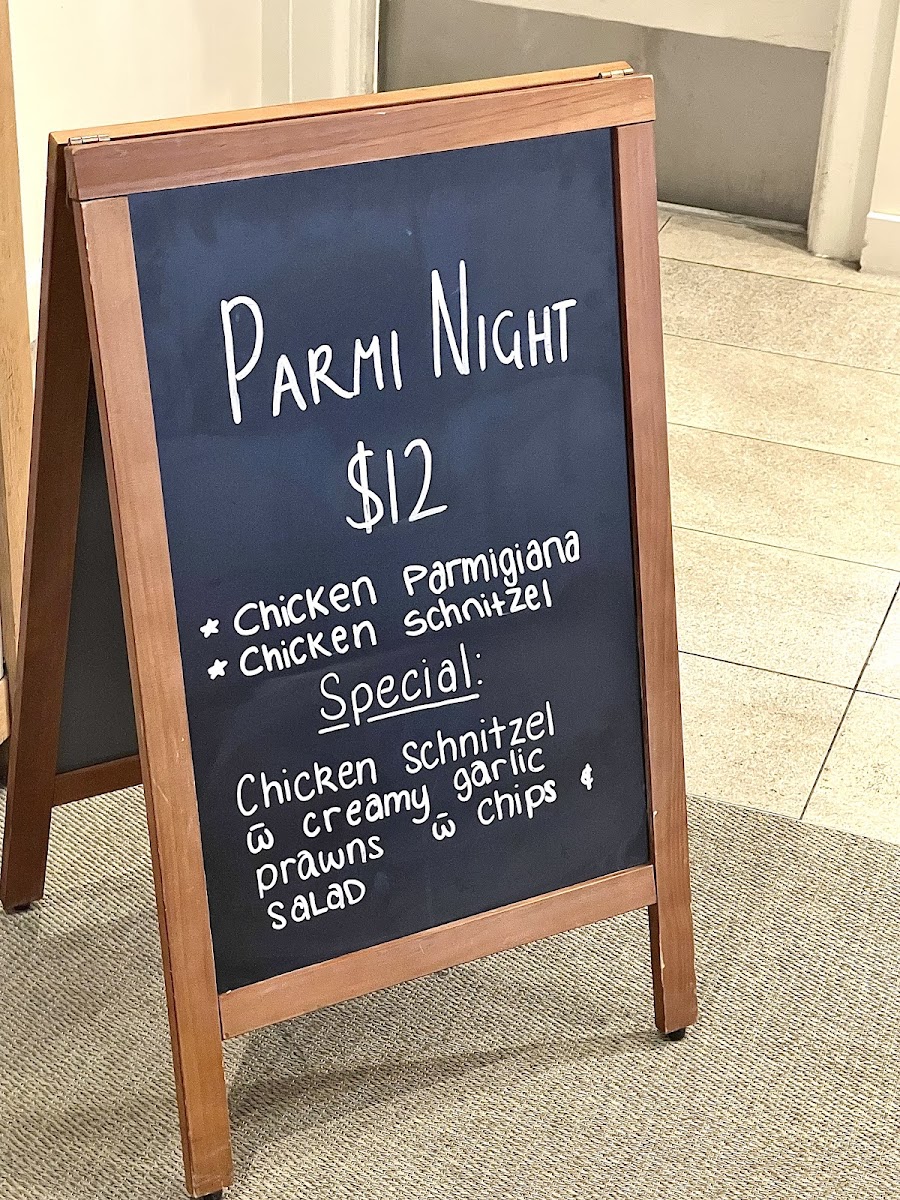 PARMI NIGHT
$12
* Chicken Parmigiana
* Chicken Schnitzel
Special:
Chicken Schnitzel
w̄ creamy garlic
prawns w̄ chips &
salad